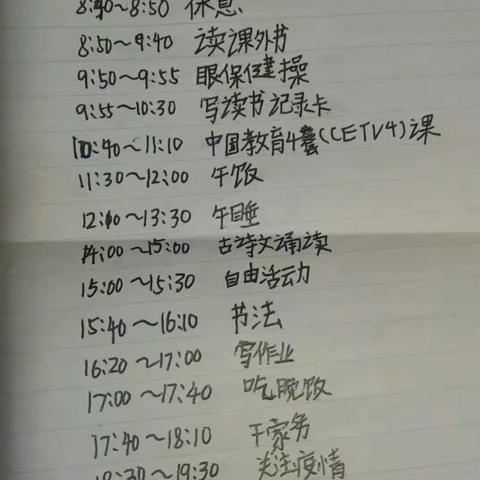 8:40～8:50 休息
8:50～9:40 读课外书
9:50～9:55 眼保健操
9:55～10:30 写读书记录卡
10:40～11:10 中国教育4套(CETV4)课
11:30～12:00 午饭
12:10～13:30 午睡
14:00～15:00 古诗文诵读
15:00～15:30 自由活动
15:40～16:10 书法
16:20～17:00 写作业
17:00～17:40 吃晚饭
17:40～18:10 干家务
18:30～19:30 关注疫情